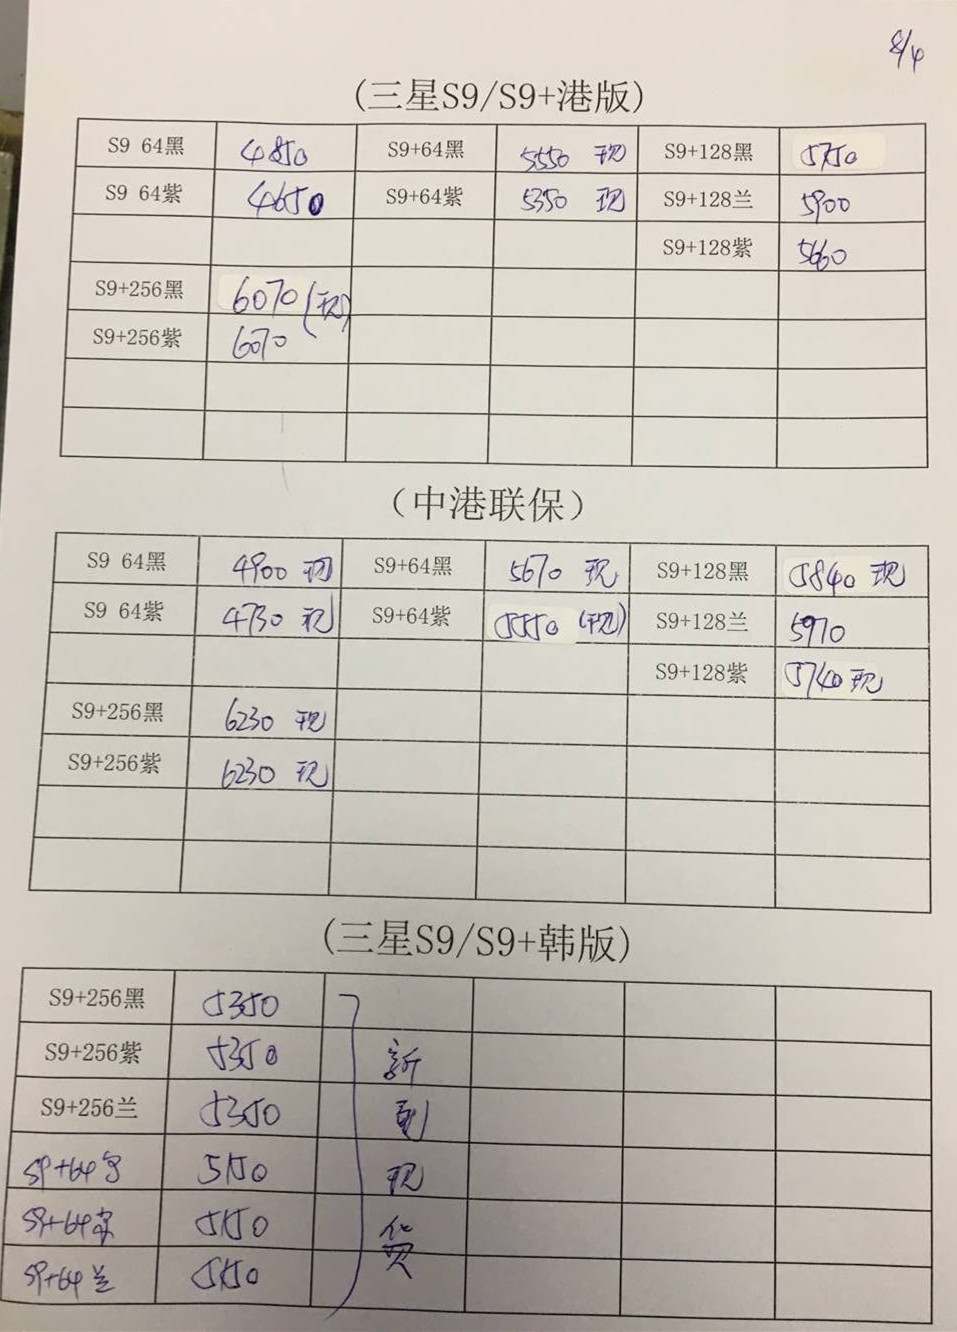 8/4
(三星S9/S9+港版)
S9 64黑 4850 S9+64黑 5550 现 S9+128黑 5750
S9 64紫 4650 S9+64紫 5350 现 S9+128兰 5900
S9+128紫 5660
S9+256黑 6070(现)
S9+256紫 6070
(中港联保)
S9 64黑 4900 现 S9+64黑 5670 现 S9+128黑 5840 现
S9 64紫 4730 现 S9+64紫 5550 (现) S9+128兰 5970
S9+128紫 5740 现
S9+256黑 6230 现
S9+256紫 6230 现
(三星S9/S9+韩版)
S9+256黑 5350
S9+256紫 5350 新
S9+256兰 5350 到
S9+64 5150 现
S9+64紫 5150 货
S9+64兰 5150